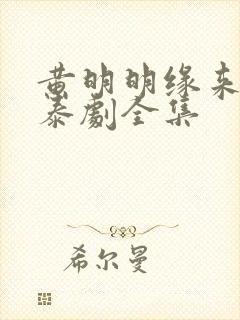 黄明明缘来
泰劇全集
希尔曼